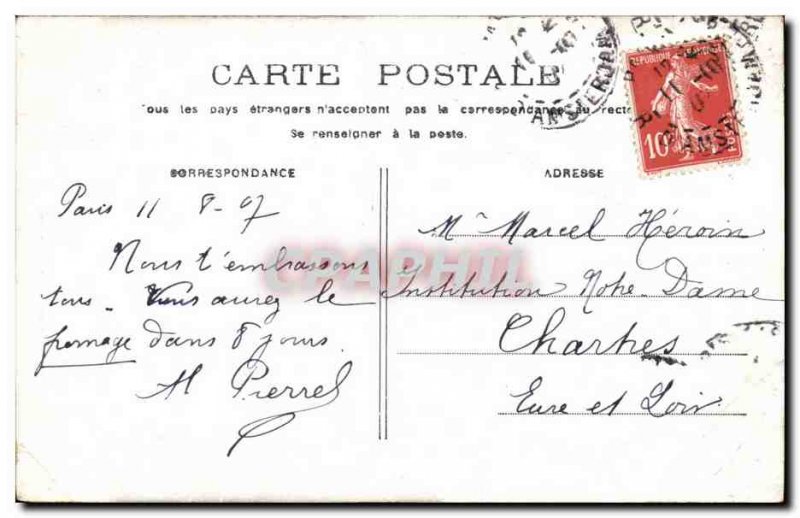 CARTE POSTALE
Tous les pays étrangers n'acceptent pas la correspondance au recto
Se renseigner à la poste.
CORRESPONDANCE
ADRESSE
REPUBLIQUE FRANÇAISE
10
Paris 11 8-07
Nous t'embrassons
tous. Vous aurez le
fromage dans 8 jours.
M Pierrel
Mr Marcel Héroin
Institution Notre-Dame
Chartres
Eure et Loir
CPAPHIL